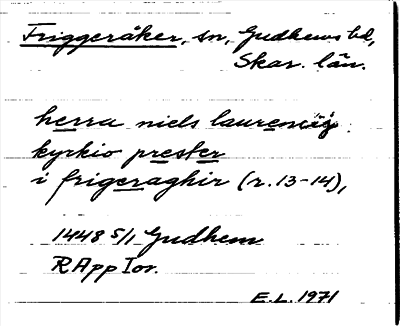 Friggeråker, sn, Gudhems hd,
Skar. län.
herra niels laurencij
kyrkio prester
i frigeraghir (r. 13-14),
1448 5/1 Gudhem
RAppIor.
E.L. 1971